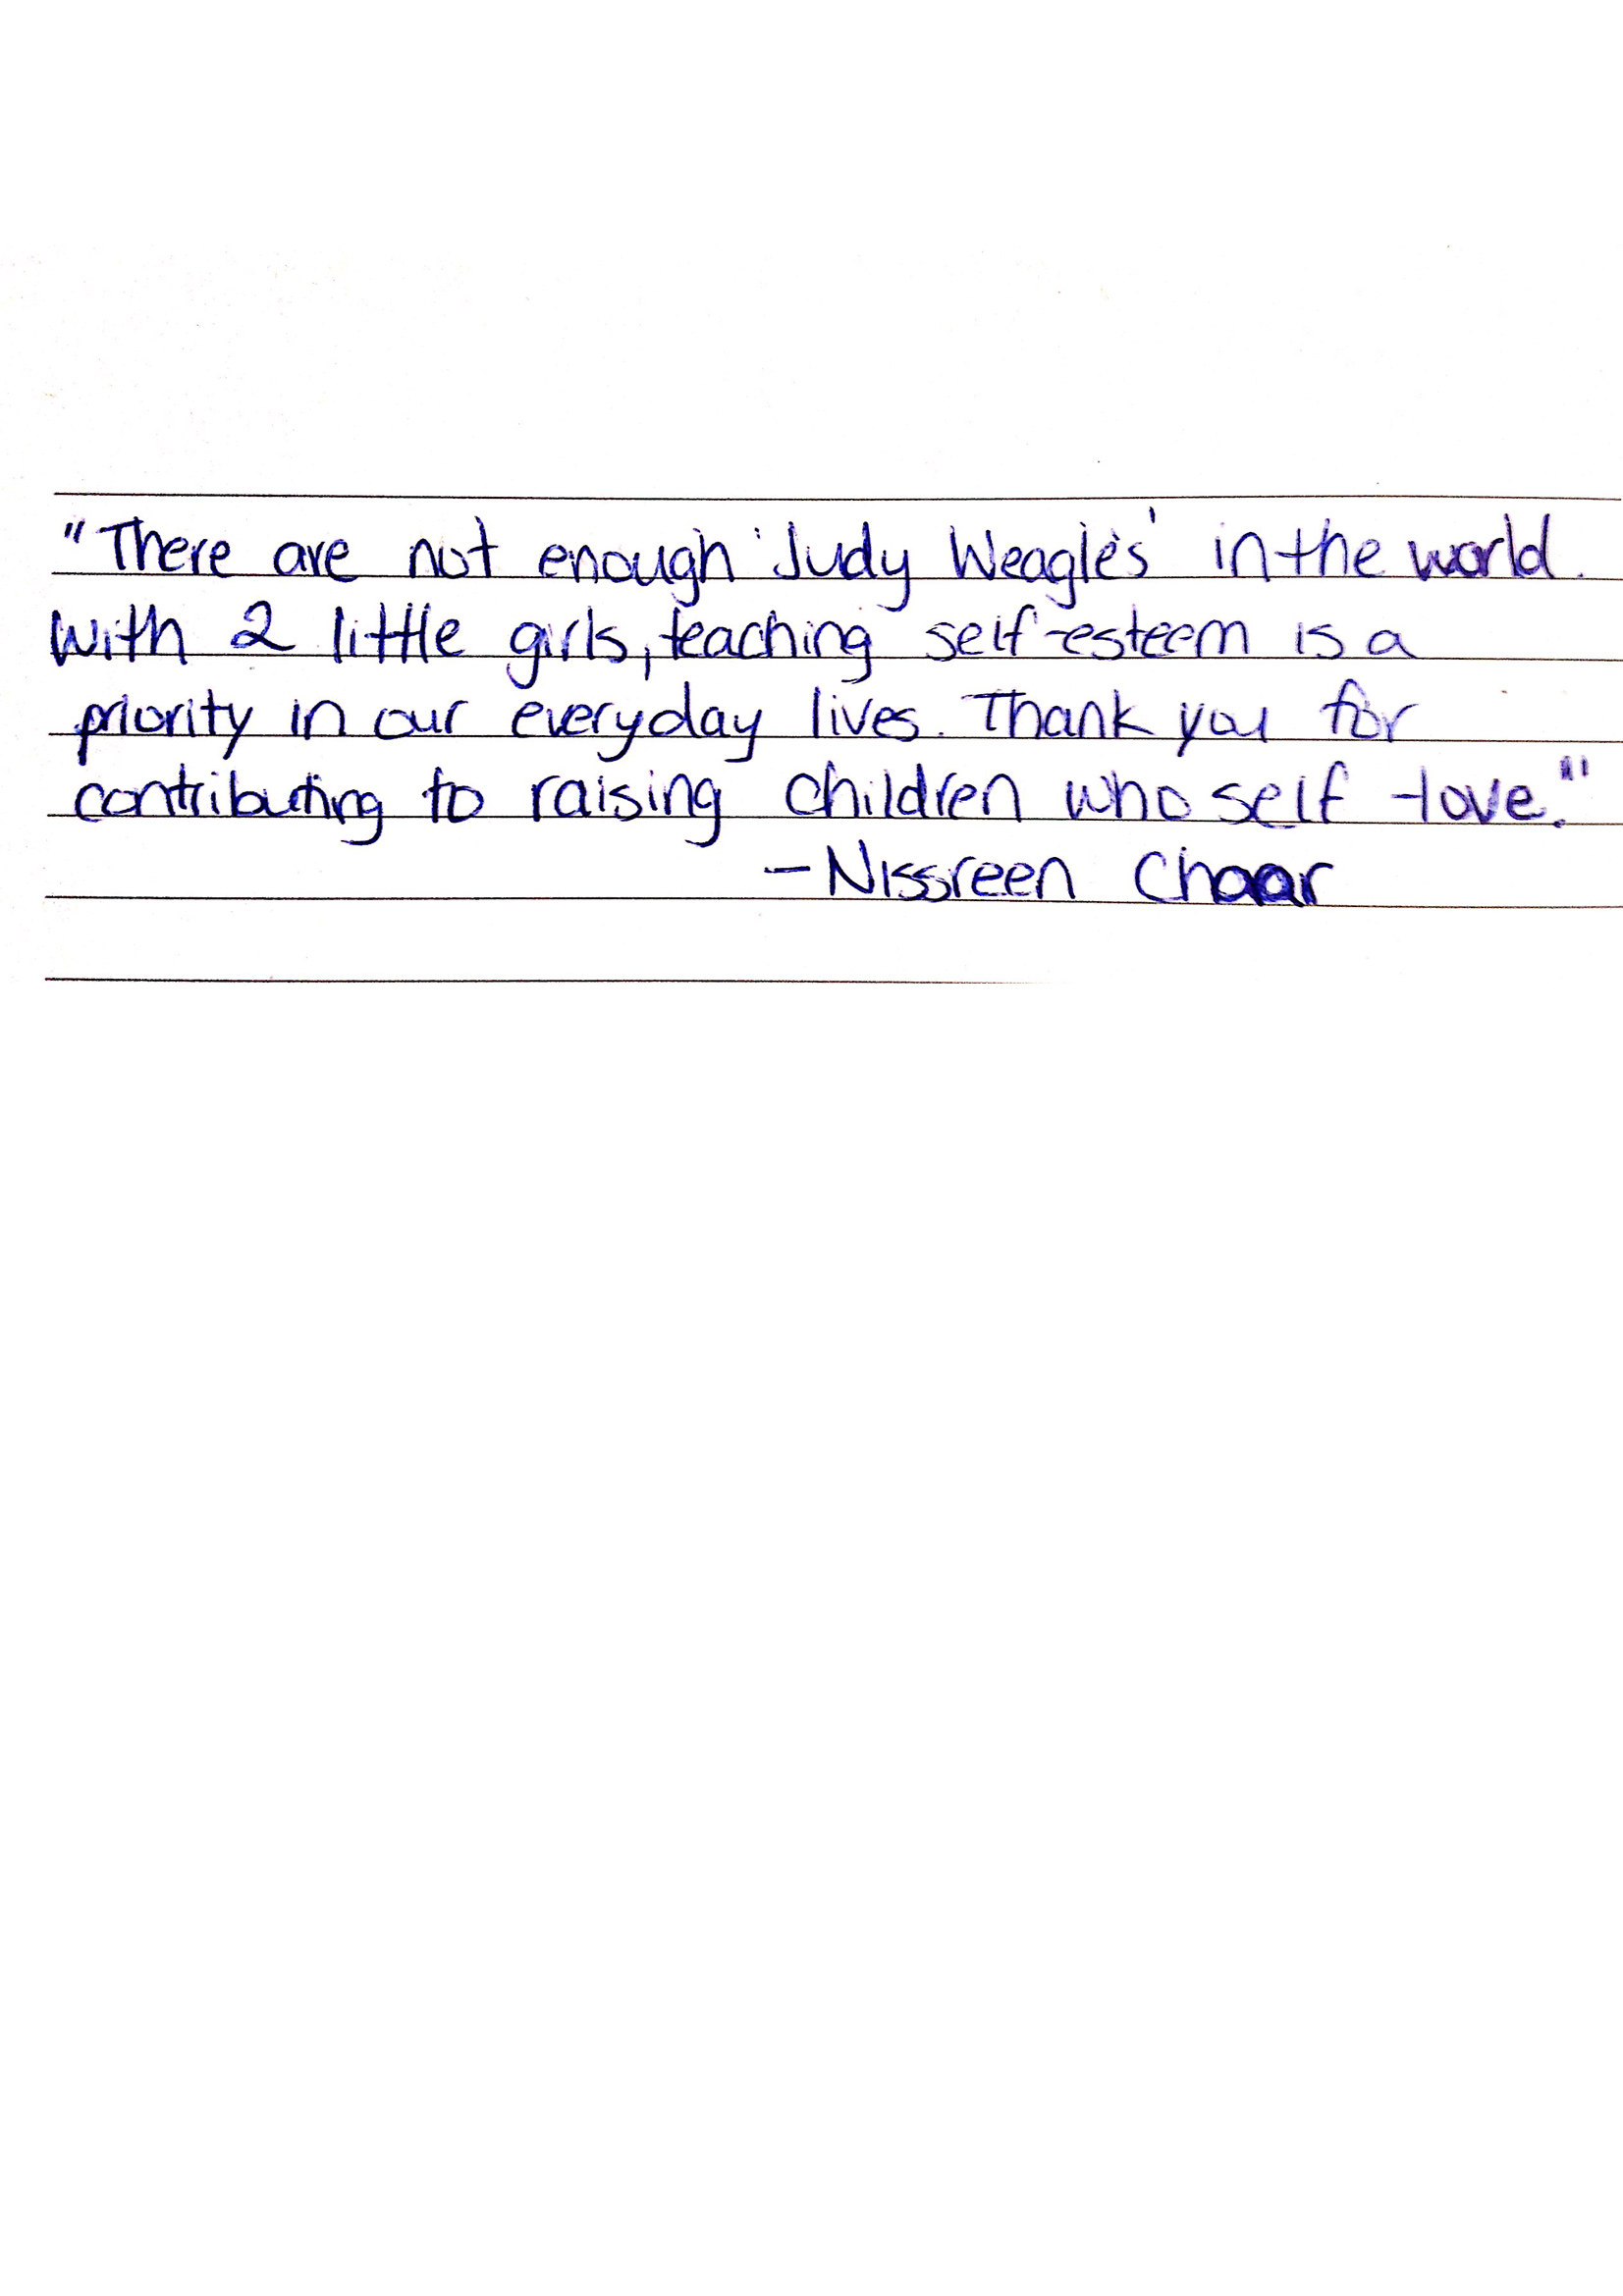 "There are not enough 'Judy Weagle's' in the world.
With 2 little girls, teaching self-esteem is a
priority in our everyday lives. Thank you for
contributing to raising children who self-love."
- Nissreen Chaar